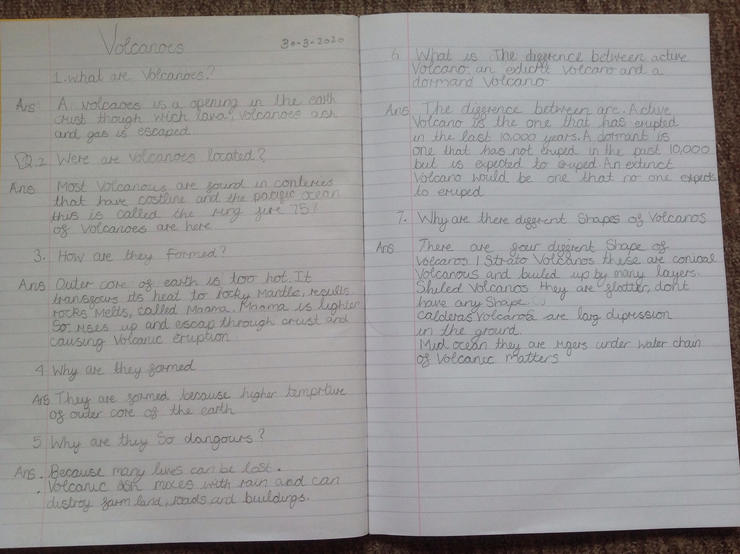 Volcanoes
30-3-2020
1. what are Volcanoes?
Ans A volcanoes is a opening in the earth
crust though wich lava, volcanoes ash
and gas is escaped
Q.2 Were are Volcanoes located?
Ans Most Volcanous are found in conteries
that have costline and the pacific ocean
this is called the ring fire 75%
of Volcanoes are here
3. How are they Formed?
Ans Outer core of earth is too hot. It
transfours its heat to rocky mantle, results
rocks Melts, called Magma. Magma is lighter
So rises up and escap through crust and
causing Volcanic eruption
4 Why are they formed
Ans They are formed because higher temprtive
of outer core of the earth
5 Why are they So dangours?
Ans. Because many lives can be lost.
Volcanic ash mixes with rain and can
distroy farm land, roads and buildings.
6. What is The difference between active
Volcano. an extictic Volcano and a
dormand Volcano
Ans The difference between are. Active
Volcano is the one that has erupted
in the last 10,000 years. A dormant is
one that has not eruped in the past 10,000
but is expected to eruped. An extinct
Volcano would be one that no one expects
to eruped
7. Why are there diffrent Shapes of Volcanos
Ans There are four diffrent Shape of
Volcanos. 1 Strato Volcanos these are conical
Volcanous and buled up by many layers.
Shiled Volcanos they are flatter, dont
have any Shape
calderas Volcanos are larg dipression
in the ground.
Mid ocean they are rigers under water chain
of Volcanic matters